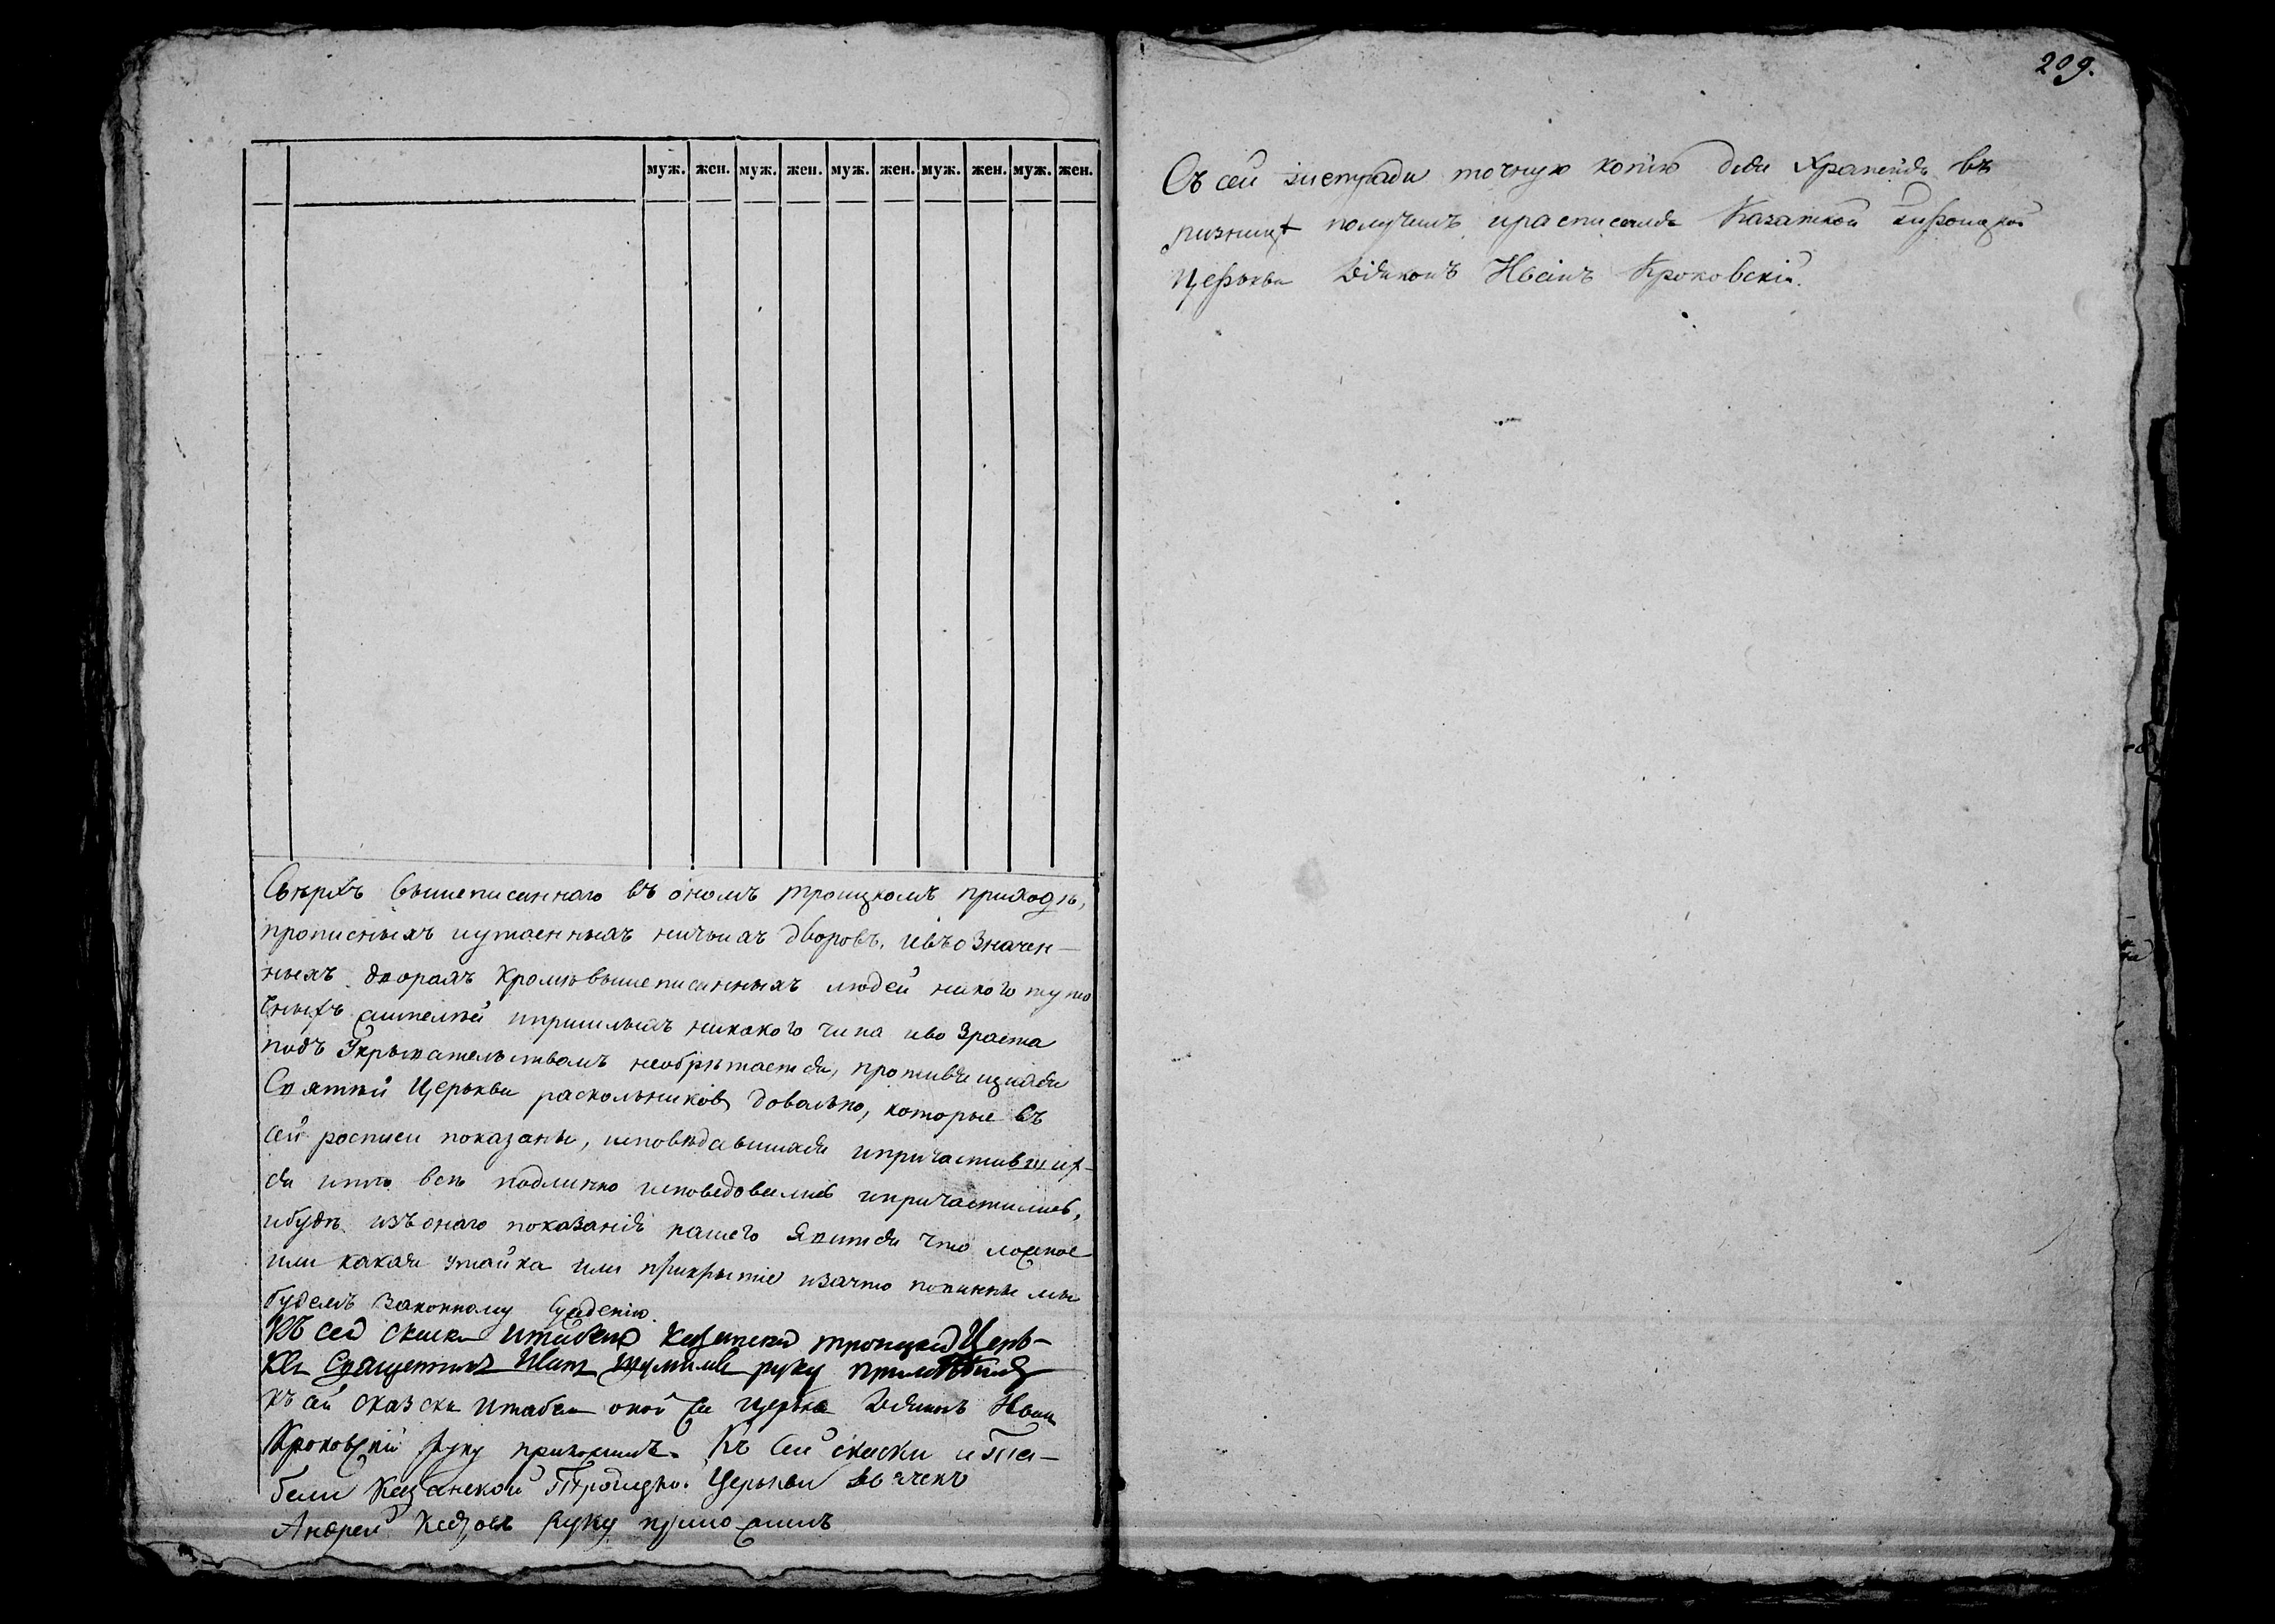 муж. жен. муж. жен. муж. жен. муж. жен. муж. жен.
Сверхъ вышеписаннаго въ ономъ троицкомъ приходѣ,
прописныхъ иутаенныхъ ничьихъ дворовъ, ивъозначен-
ныхъ дворахъ кромѣвышеписанныхъ людей никого туто
шныхъ жителей ипришлыхъ никакого чина ивозраста
подъ Укрывательствомъ необрѣтается, противящихся
Святѣй Церькви раскольниковъ довольно, которые въ
сей росписи показаны, исповѣдавшихся ипричастивших-
ся итѣ всѣ подлинно исповедовались ипричастились,
ибуде изъонаго показанія нашего Явится что ложное
или какая утайка или прикрытіе изачто повинны мы
будемъ Законному Сужденію.
Къ сей скаски итабели Казанской троицкой Церь-
кви Священникъ Иванъ руку приложилъ
къ сей сказски итабели оной же церькви Діяконъ Иванъ
Кроковскій руку приложилъ. Къ Сей скаски и Та-
бели Казанской Троицкой Церькви дьячекъ
Андрей Кедровъ руку приложилъ
209.
Съ сей точную копію для храненія въ
ризницѣ получилъ ирасписался Казанской
Церькви Діяконъ Иванъ Кроковскій.